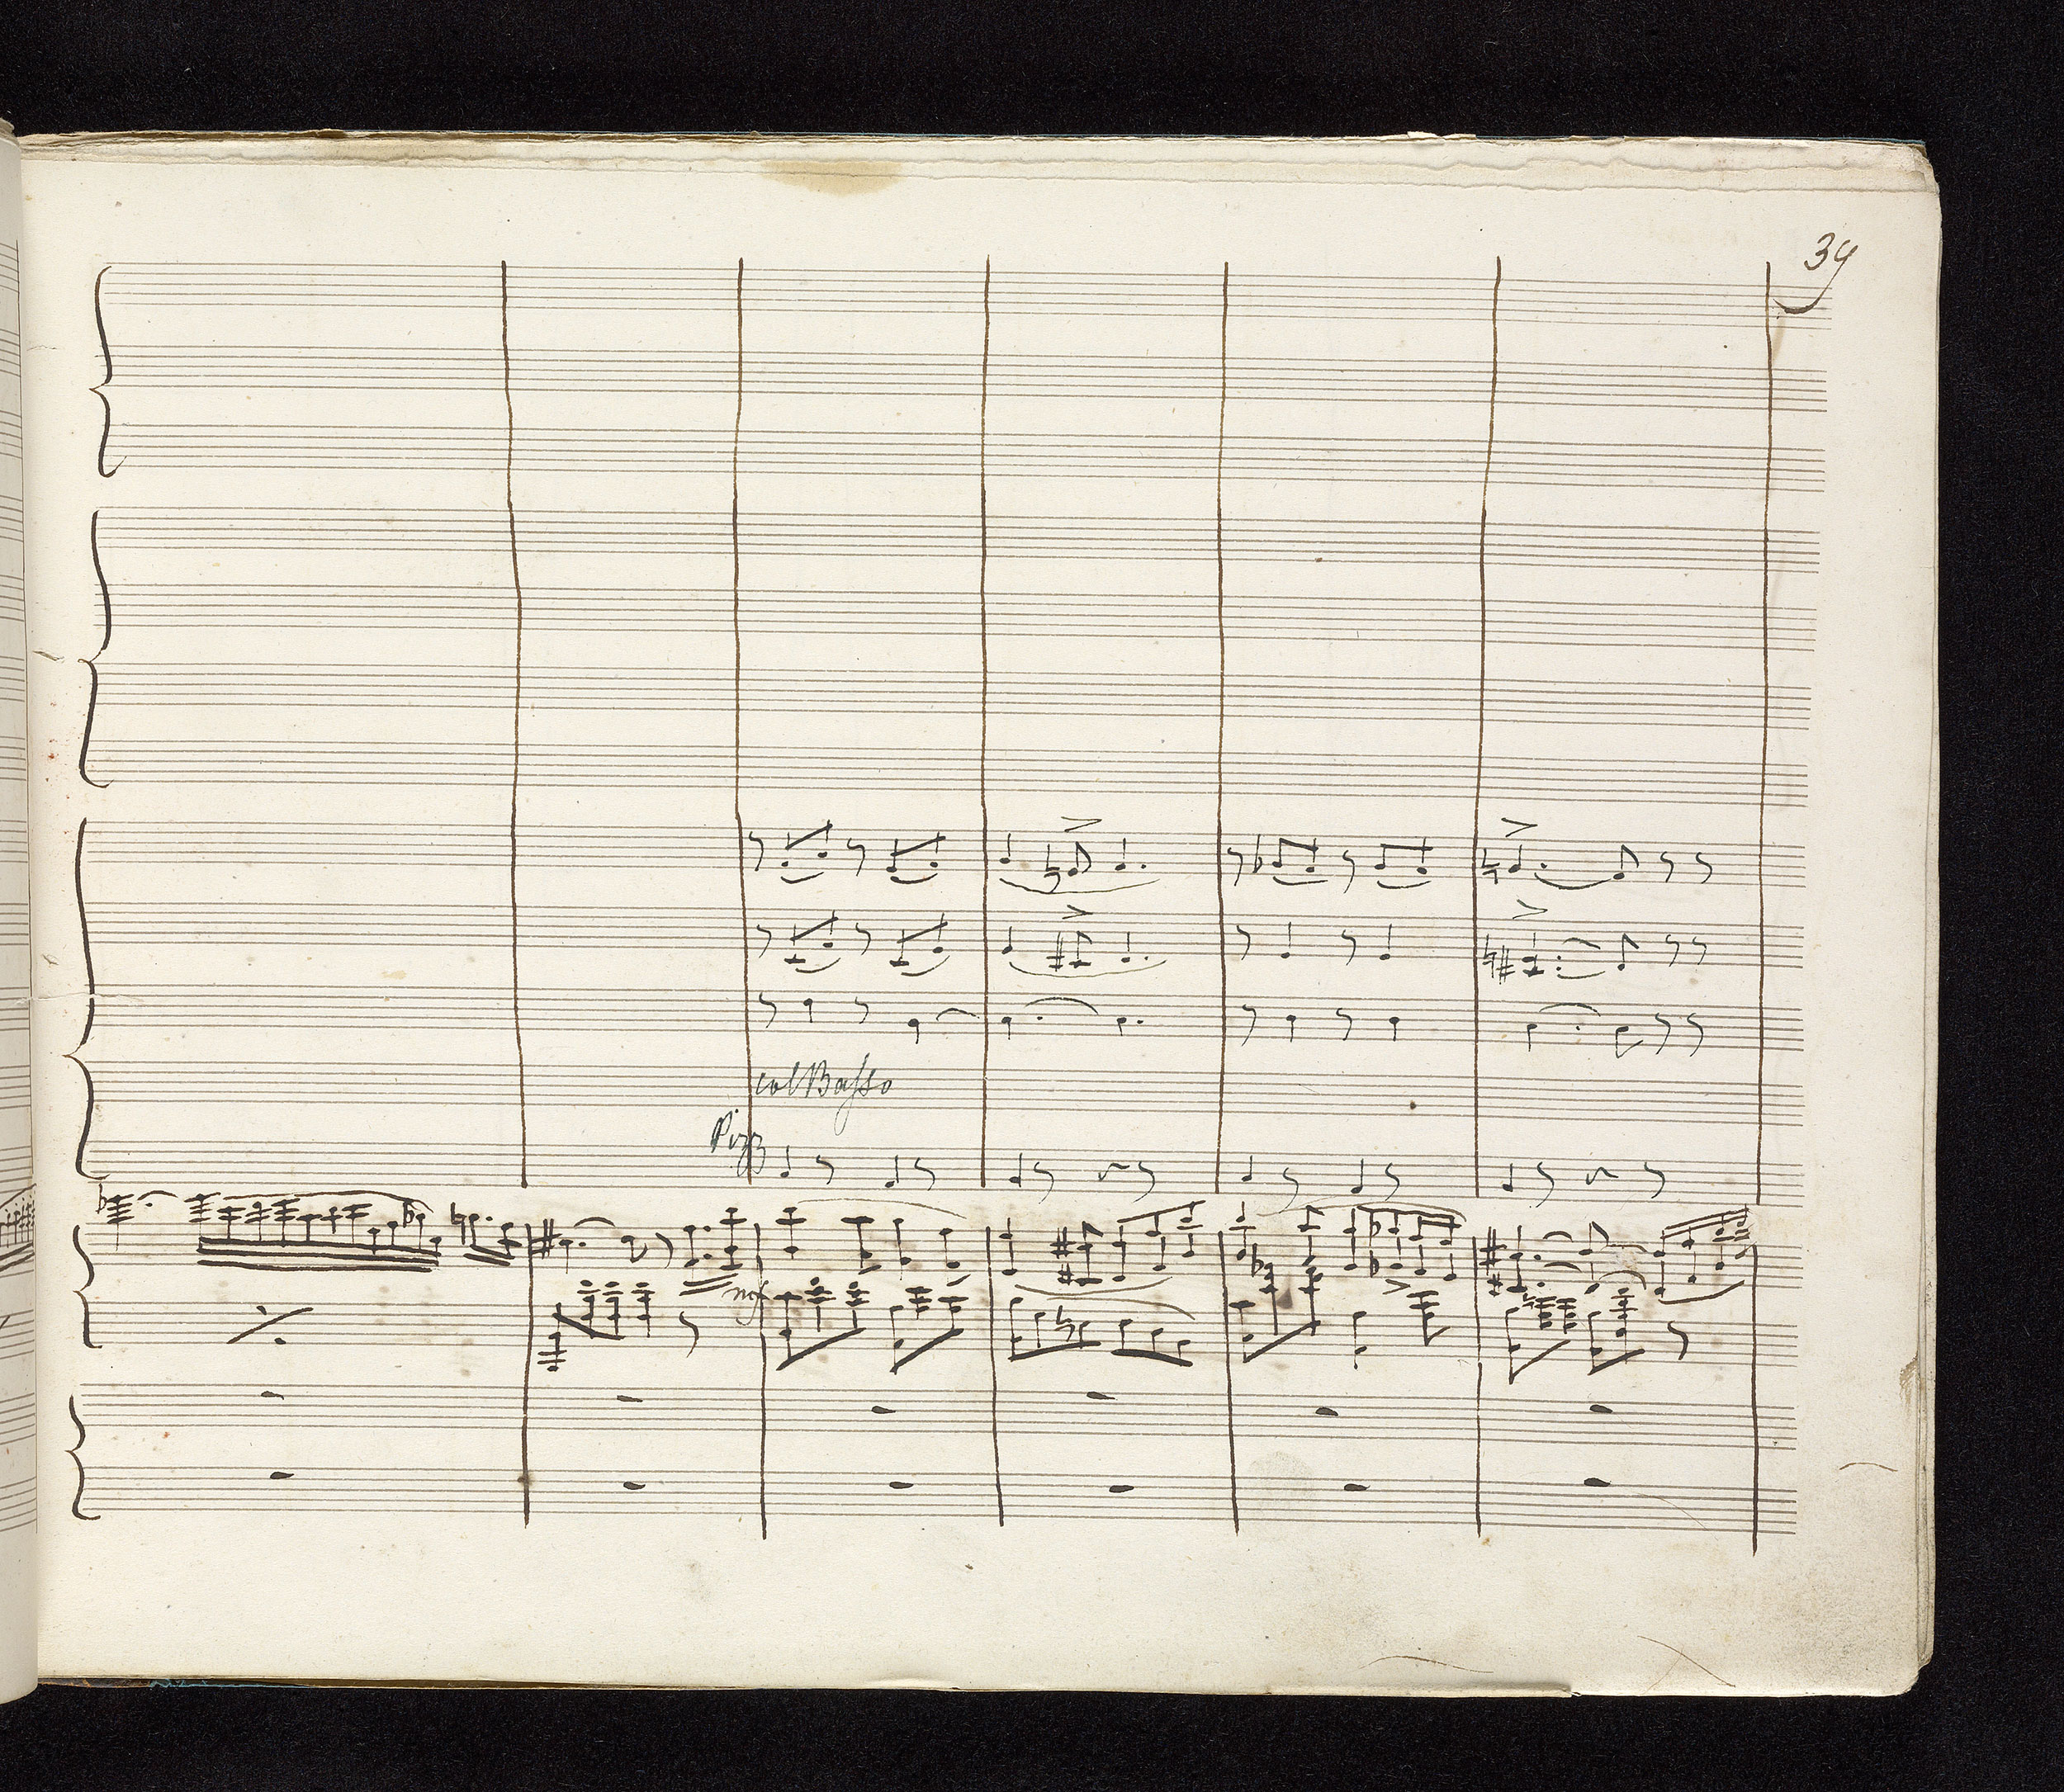 39
col Basso
Pizz
mf